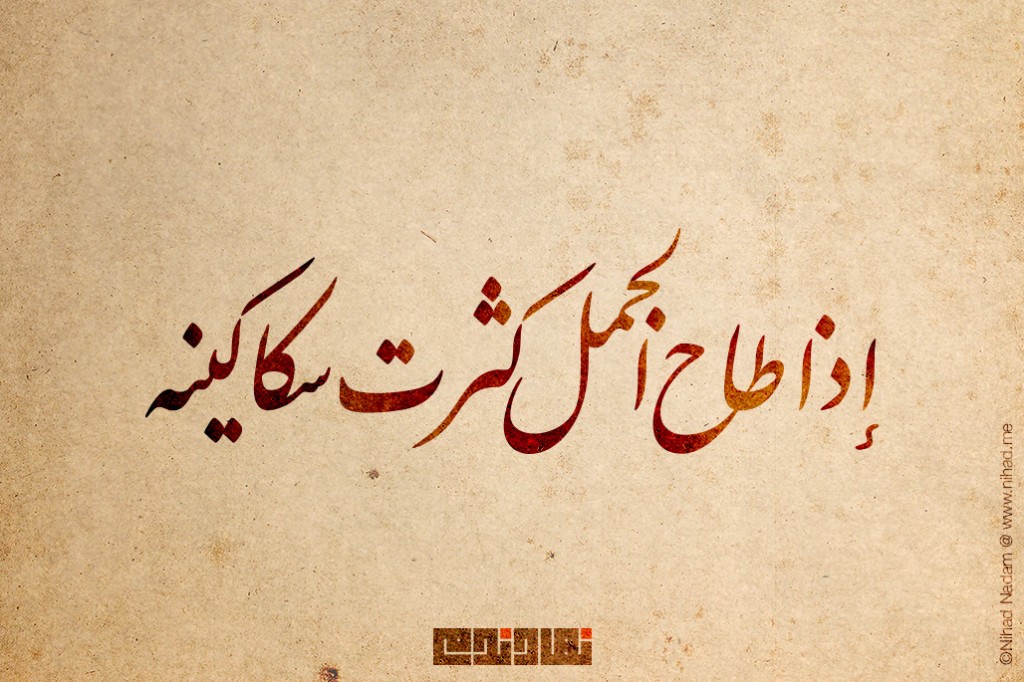 إذا طاح الجمل كثرت سكاكينه
©Nihad Nadam @ www.nihad.me